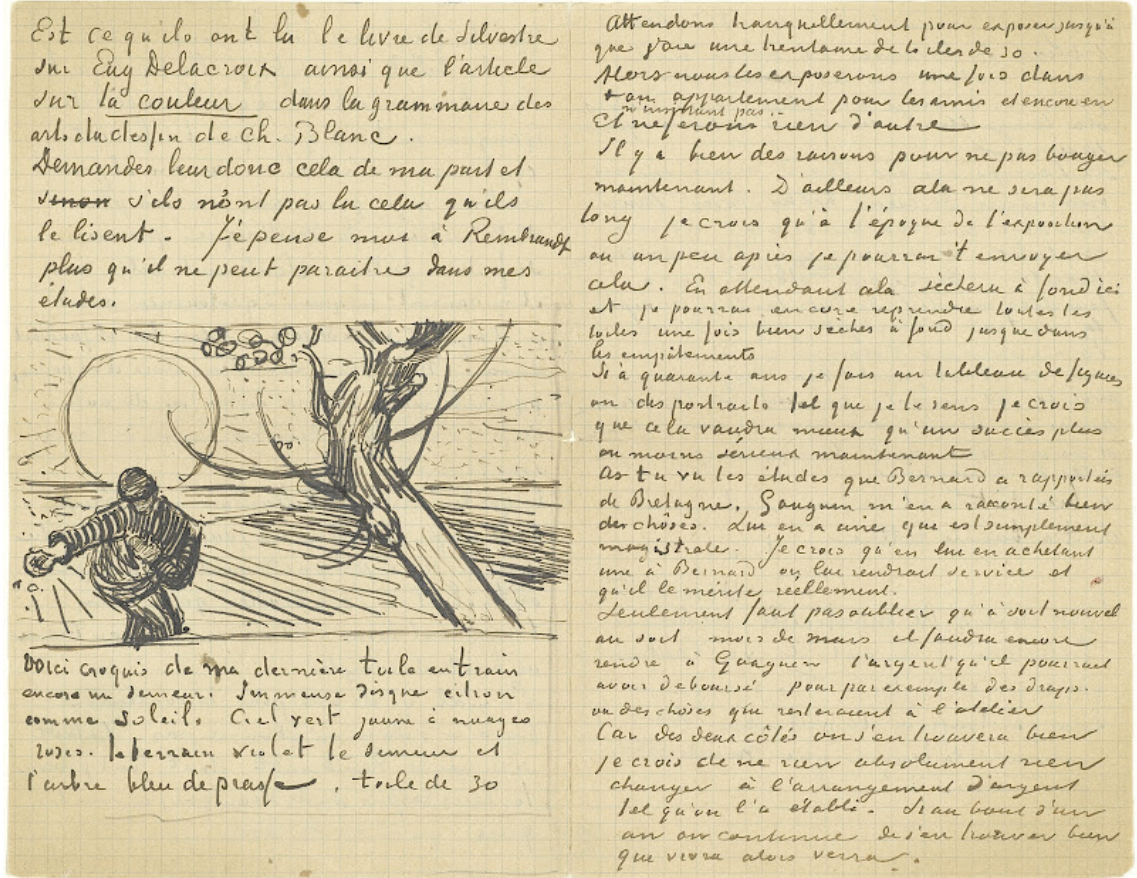 Est ce qu'ils ont lu le livre de Silvestre
sur Eug Delacroix ainsi que l'article
sur la couleur dans la grammaire des
arts du dessin de Ch. Blanc.
Demandes leur donc cela de ma part et
sinon s'ils n'ont pas lu cela qu'ils
le lisent. J'épense moi à Rembrandt
plus qu'il ne peut paraitre dans mes
études.
Voici croquis de ma dernière toile en train
encore un semeur. Immense disque citron
comme soleil. Ciel vert jaune à nuages
roses. le terrain violet le semeur et
l'arbre bleu de prusse. toile de 30
Attendons tranquillement pour exposer jusqu'à
que j'aie une trentaine de toiles de 30.
Alors nous les exposerons une fois dans
ton appartement pour les amis et encore en
n'insistant pas.
Et ne ferons rien d'autre
Il y a bien des raisons pour ne pas bouger
maintenant. D'ailleurs cela ne sera pas
long je crois qu'à l'époque de l'exposition
ou un peu après je pourrai t'envoyer
cela. En attendant cela sèchera à fond ici
et je pourrai encore reprendre toutes les
toiles une fois bien sèches à fond jusque dans
les empâtements
Si à quarante ans je fais un tableau de figures
ou des portraits tel que je le sens je crois
que cela vaudra mieux qu'un succès plus
ou moins sérieux maintenant
As tu vu les études que Bernard a rapportées
de Bretagne. Gauguin m'en a raconté bien
des chôses. Lui en a une que est simplement
magistrale. Je crois qu'en lui en achetant
une à Bernard on lui rendrait service et
qu'il le mérite réellement.
Seulement faut pas oublier qu'à soit nouvel
an soit mois de mars il faudra encore
rendre à Gauguin l'argent qu'il pourrait
avoir déboursé pour par exemple des draps.
ou des choses que resteraient à l'atelier
Car des deux côtés on s'en trouvera bien
je crois de ne rien absolument rien
changer à l'arrangement d'argent
tel qu'on l'a établi. Si au bout d'un
an on continue de s'en trouver bien
que vivra alors verra.